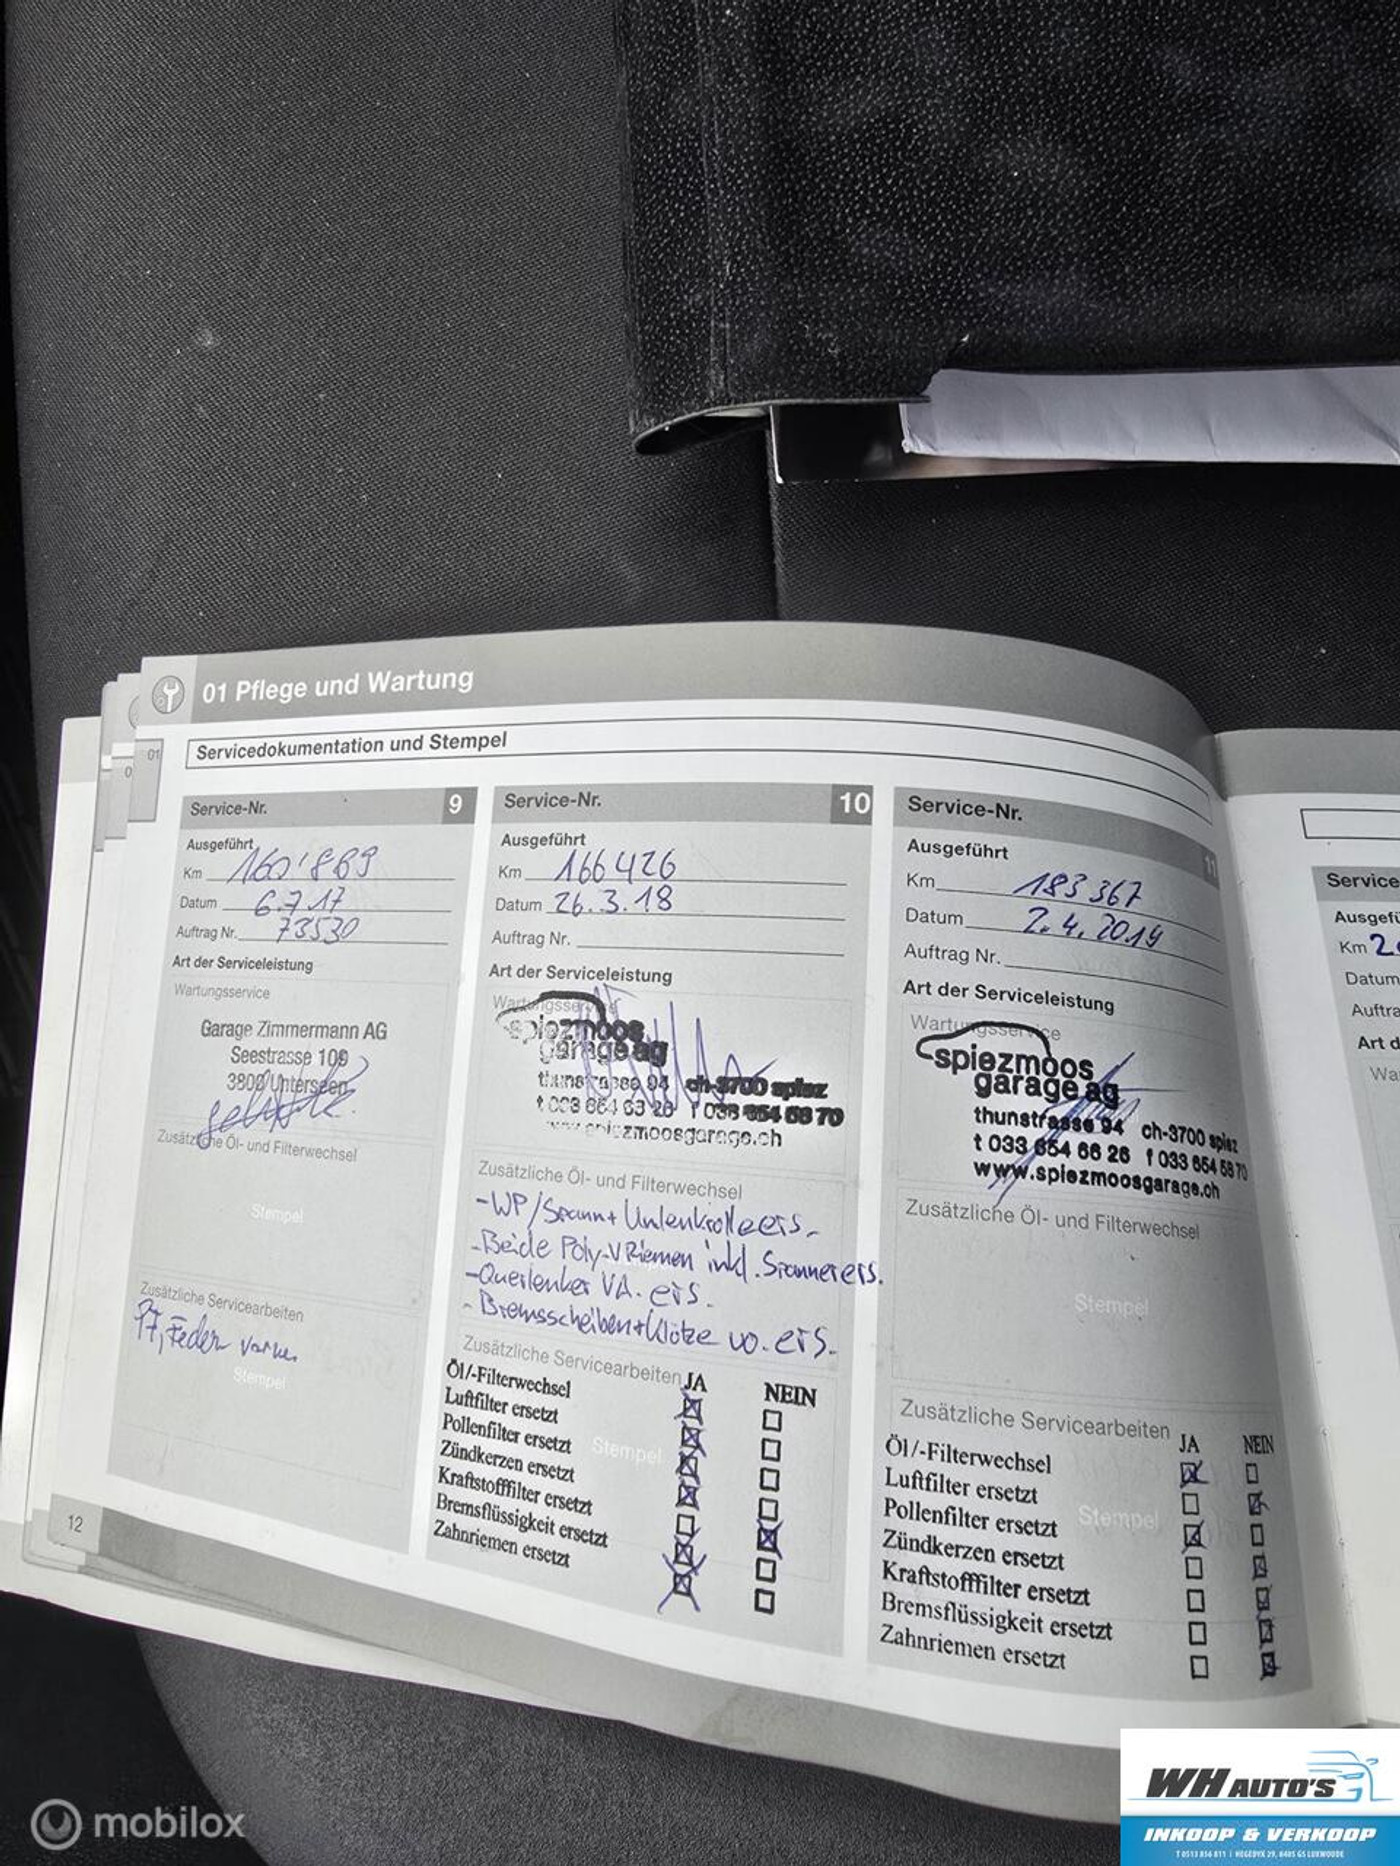 01 Pflege und Wartung
01
0
Servicedokumentation und Stempel
Service-Nr. 9
Ausgeführt
Km 160'889
Datum 6.7.17
Auftrag Nr. 73530
Art der Serviceleistung
Wartungsservice
Garage Zimmermann AG
Seestrasse 109
3800 Unterseen
Zusätzliche Öl- und Filterwechsel
Stempel
Zusätzliche Servicearbeiten
Federn
Stempel
12
Service-Nr. 10
Ausgeführt
Km 166426
Datum 26.3.18
Auftrag Nr.
Art der Serviceleistung
Wartungsservice
spiezmoos
garage ag
thunstrasse 94 ch-3700 spiez
t 033 654 66 26 f 033 654 58 70
www.spiezmoosgarage.ch
Zusätzliche Öl- und Filterwechsel
-WP/Spann+ Umlenkrolle ers.
-Beide Poly-V Riemen inkl. Spanner ers.
-Querlenker VA. ers.
-Bremsscheiben+Klötze vo. ers.
Zusätzliche Servicearbeiten
JA NEIN
Öl/-Filterwechsel
Luftfilter ersetzt
Pollenfilter ersetzt
Stempel
Zündkerzen ersetzt
Kraftstofffilter ersetzt
Bremsflüssigkeit ersetzt
Zahnriemen ersetzt
Service-Nr. 11
Ausgeführt
Km 183 367
Datum 2.4.2019
Auftrag Nr.
Art der Serviceleistung
Wartungsservice
spiezmoos
garage ag
thunstrasse 94 ch-3700 spiez
t 033 654 66 26 f 033 654 58 70
www.spiezmoosgarage.ch
Zusätzliche Öl- und Filterwechsel
Stempel
Zusätzliche Servicearbeiten
JA NEIN
Öl/-Filterwechsel
Luftfilter ersetzt
Pollenfilter ersetzt
Stempel
Zündkerzen ersetzt
Kraftstofffilter ersetzt
Bremsflüssigkeit ersetzt
Zahnriemen ersetzt
Service
Ausgefü
Km 2
Datum
Auftra
Art d
Wa
mobilox
WH AUTO'S
INKOOP & VERKOOP
T 0513 856 811 | HEGEDYK 29, 8405 GS LUXWOUDE